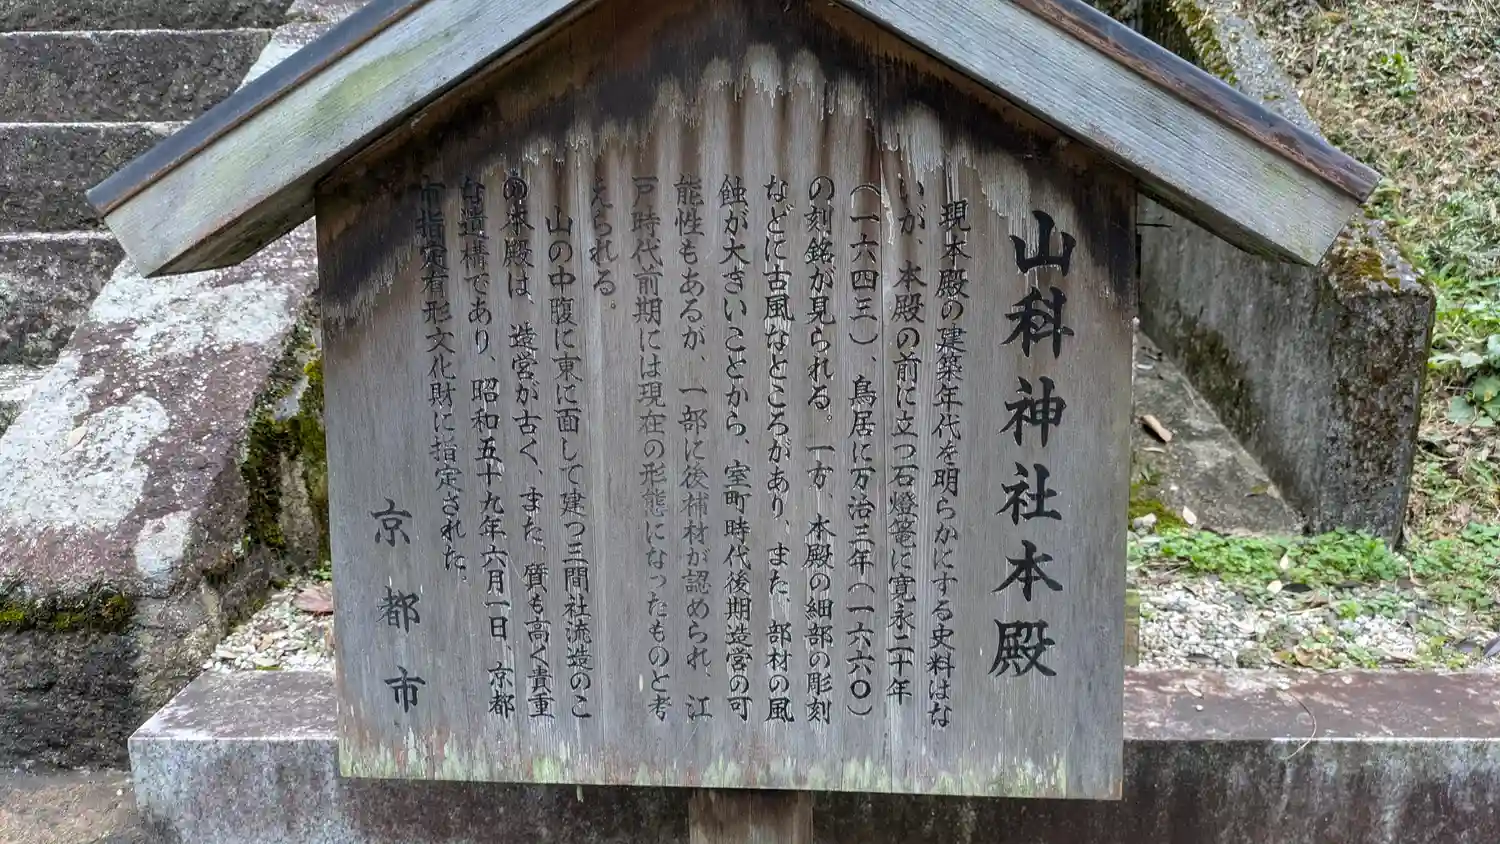 山科神社本殿
現本殿の建築年代を明らかにする史料はな
いが、本殿の前に立つ石燈篭に寛永二十年
(一六四三)、鳥居に万治三年(一六六〇)
の刻銘が見られる。一方、本殿の細部の彫刻
などに古風なところがあり、また、部材の風
蝕が大きいことから、室町時代後期造営の可
能性もあるが、一部に後補材が認められ、江
戸時代前期には現在の形態になったものと考
えられる。
山の中腹に東に面して建つ三間社流造のこ
の本殿は、造営が古く、また、質も高く貴重
な遺構であり、昭和五十九年六月一日、京都
市指定有形文化財に指定された。
京都市